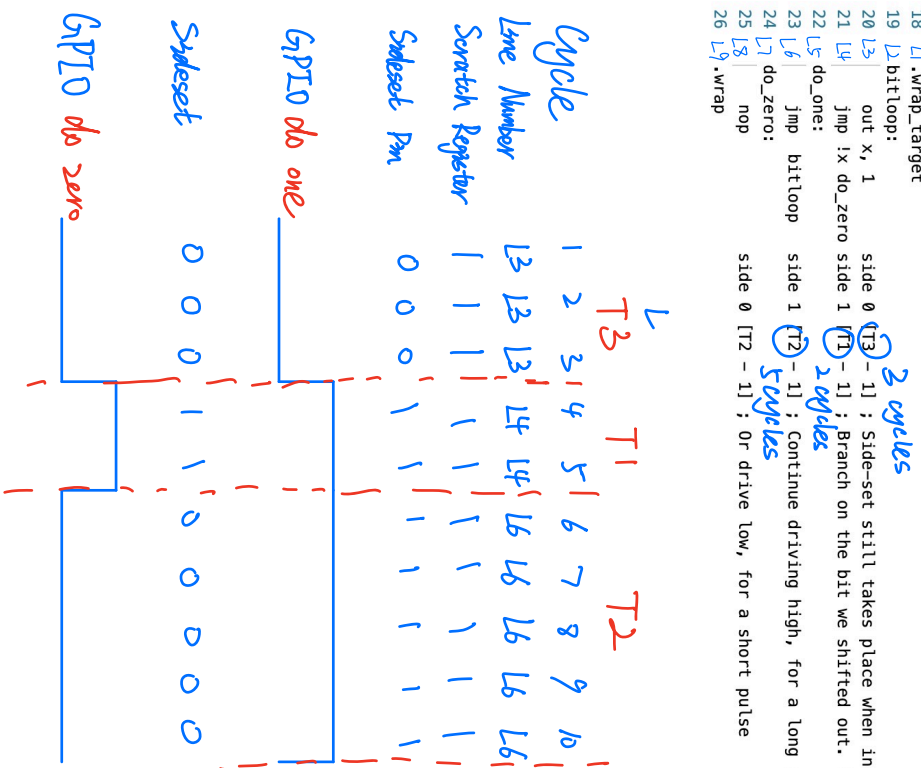 18 L1 .wrap_target
19 L2 bitloop:
20 L3 out x, 1 side 0 [T3 - 1] ; Side-set still takes place when in
3 cycles
21 L4 jmp !x do_zero side 1 [T1 - 1] ; Branch on the bit we shifted out.
2 cycles
22 L5 do_one:
23 L6 jmp bitloop side 1 [T2 - 1] ; Continue driving high, for a long
5 cycles
24 L7 do_zero:
25 L8 nop side 0 [T2 - 1] ; Or drive low, for a short pulse
26 L9 .wrap
L
T3 T1 T2
Cycle 1 2 3 4 5 6 7 8 9 10
Line Number L3 L3 L3 L4 L4 L6 L6 L6 L6 L6
Scratch Register 1 1 1 1 1 1 1 1 1 1
Sideset Pin 0 0 0 1 1 1 1 1 1 1
GPIO do one
Sideset 0 0 0 1 1 0 0 0 0 0
GPIO do zero